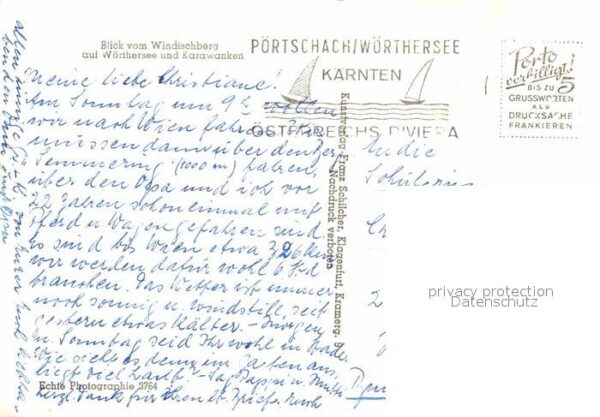 Blick vom Windischberg
auf Wörthersee und Karawanken
PÖRTSCHACH/WÖRTHERSEE
KÄRNTEN
ÖSTERREICHS RIVIERA
Porto
verbilligt!
BIS ZU 5
GRUSSWORTEN
ALS
DRUCKSACHE
FRANKIEREN
Meine liebe Christiane!
Am Sonntag um 9½ wollen
wir nach Wien fahren. Wir
müssen dann über den Berg
Semmering (1000 m) fahren,
über den Opa und ich vor
22 Jahren schon einmal mit
Pferd u. Wagen gefahren sind.
Es sind bis Wien etwa 326 km
wir werden dafür wohl 6 Std
brauchen. Das Wetter ist immer
noch sonnig u. windstill, seit
gestern etwas kälter. – Morgen
u. Sonntag seid Ihr wohl in
Wie sieht es denn im Garten aus,
liegt viel Laub? – Sag Pappi u. Mutti
herzl. Dank für Ihren Brief. Euch
allen
von Eurer Euch
An die
Schülerin
Kunstverlag Franz Schilcher, Klagenfurt, Kramerg. 9
Nachdruck verboten
Echte Photographie 3764
privacy protection
Datenschutz